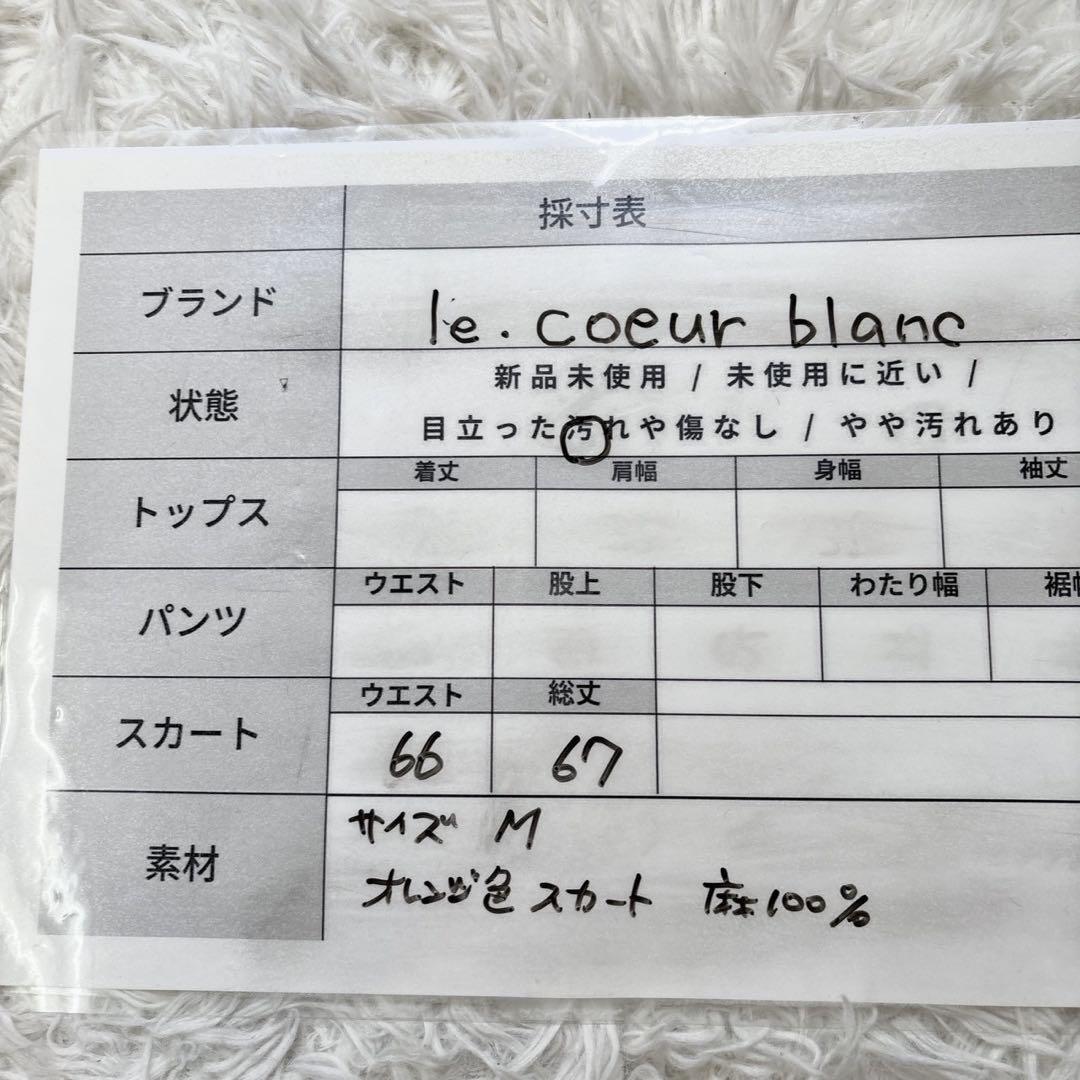 採寸表
ブランド le.coeur blanc
状態 新品未使用 / 未使用に近い /
目立った汚れや傷なし / やや汚れあり
トップス 着丈 肩幅 身幅 袖丈
パンツ ウエスト 股上 股下 わたり幅 裾
スカート ウエスト 総丈
66 67
素材 サイズ M
オレンジ色 スカート 麻100%